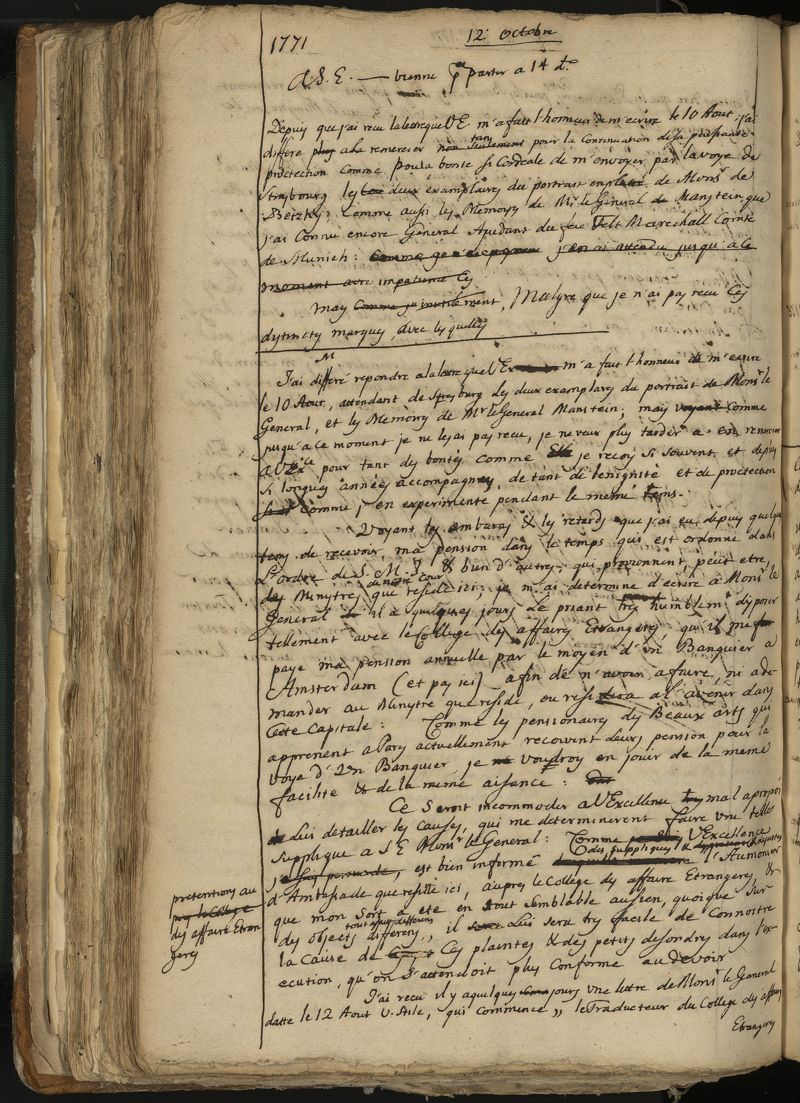 1771
12 Octobre
A.S.E. — vienne pr parter a 14 de
Depuy que j'ai recu la lettre que V.E. m'a fait l'honneur de m'ecrire le 10 Aout, j'ai
differé plus a la remercier non seulement tan pour la Continuation de sa
protection comme pour sa bonte si Cordeale de m'envoyer par la voye de
Strasbourg les deux examplaires du portrait en de Monsr de
Betzky: Comme aussi les Memoirs de Mr le General de Manstein, que
j'ai Connu encore General Ajudant du feu Felt Marechall Comte
de Munich: Comme je j'en ai attendu jusqu'a ce
moment avec impatience Ces
may Comme ju inutilement, Malgre que je n'ai pas recu Ces
dystincts marques, avec lesquelles
J'ai differé repondre a la lettre que V.E. m'a fait l'honneur de m'ecrire
le 10 Aout, attendent de Strasburg les deux examplares du portrait de Monsr le
General, et les Memoirs de Mr le General Manstein; may voyant Comme
jusqu'a ce moment je ne les ai pas recu, je ne veux plus tarder a en remercier
a V. Exce pour tant des bontés comme Elle je recois si souvent et depuis
si longues années accompagnés, de tant de benignité et de protection
Comme j'en experimente pendant le meme tems.
Voyant les embaras & les retards que j'ai eu depuy quelque
tems de recevoir, ma pension dans le temps qui est ordonné dans
L'ordre de S. M. I. & bien d'autres, qui provionnent, peut etre,
des Minystres du notre Cour que reside ici, je m'ai determiné d'ecrire à Monsr le
General il a quelques jours le priant tres humblemt disposer
tellement avec le College des affaires Etrangeres, qu'il me
paye ma pension annuelle par le moyen d'un Banquier a
Amsterdam (et pas ici) afin de n'avoir affaire, ni ade-
mander au Minystre que reside, ou residera a l'avenir dans
Cete Capitale: Comme les pensionaires des Beaux arts qui
apprenent a Parys actuellement recoivent leurs pension pour la
voye d'un Banquier, je voudroy en jouir de la meme
facilité & de la meme aisance:
Ce Seroit incommoder a V Excellence mal apropos
de Lui detailler les Causes, qui me determinerent faire une telle
Supplique a S E Monsr le General: Comme V Excellence
est bien informé des suppliques & l'Aumonier
d'Ambasade que reside ici, aupres le College des affaire Etrangeres, &
que mon Sort a ete en tout semblable au sien, quoique sur
des Objects tout a fait differens differens, il Lui sera tres facile de Connoitre
la Cause de Ces plaintes & des petits desordres dans l'ex-
ecution, qu'on s'attendoit plus Conforme au devoir
J'ai recu il y a quelques jours une lettre de Monsr le General
datte le 12 Aout V. Stile, qui commence „ le Traducteur du College des affaires
Etrangeres
pretentions au
College
des affaires Etran
geres